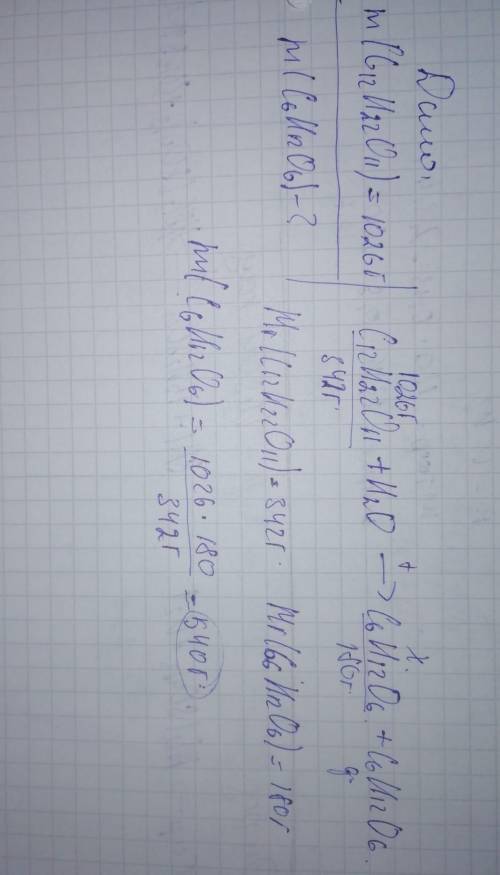 Дано:
m(C12H22O11) = 1026г
m(C6H12O6) - ?
1026г x
C12H22O11 + H2O → C6H12O6 + C6H12O6.
342г 180г
Mr(C12H22O11) = 342г. Mr(C6H12O6) = 180г
m(C6H12O6) = 1026 · 180 = 540г.
342г